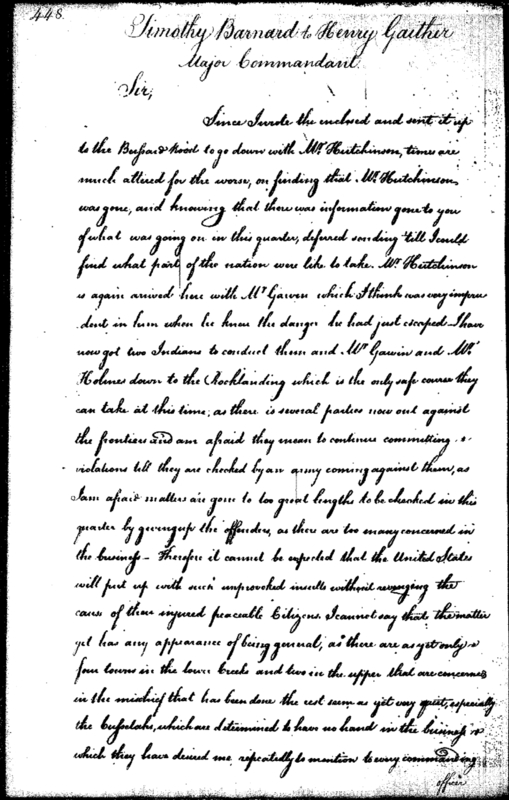 448.
Timothy Barnard to Henry Gaither
Major Commandant
Sir,
Since I wrote the inclosed and sent it up
to the Bussard Roost to go down with Mr Hutchinson, times are
much altered for the worse, on finding that Mr Hutchinson
was gone, and knowing that there was information gone to you
of what was going on in this quarter, deferred sending till I could
find what part of the nation were like to take. Mr Hutchinson
is again arrived here with Mr Gawin which I think was very impru
dent in him when he knew the danger he had just escaped I have
now got two Indians to conduct them and Mr Gawin and Mr
Holmes down to the Rocklanding which is the only safe course they
can take at this time, as there is several parties now out against
the frontiers and am afraid they mean to continue committing
violations till they are checked by an army coming against them, as
I am afraid matters are gone to too great lengths to be checked in this
quarter by giveing up the offenders, as there are too many concerned in
the business – Therefore it cannot be expected that the United States
will put up with such unprovoked insults without revenging the
cause of their injured peaceable Citizens. I cannot say that the matter
yet has any appearance of being general, as there are as yet only
four towns in the lower Creeks and two in the upper that are concerned
in the mischief that has been done the rest seem as yet very quiet, especially
the Cussetahs, which are determined to have no hand in the business &
which they have desired me repeatedly to mention to every commanding
officer